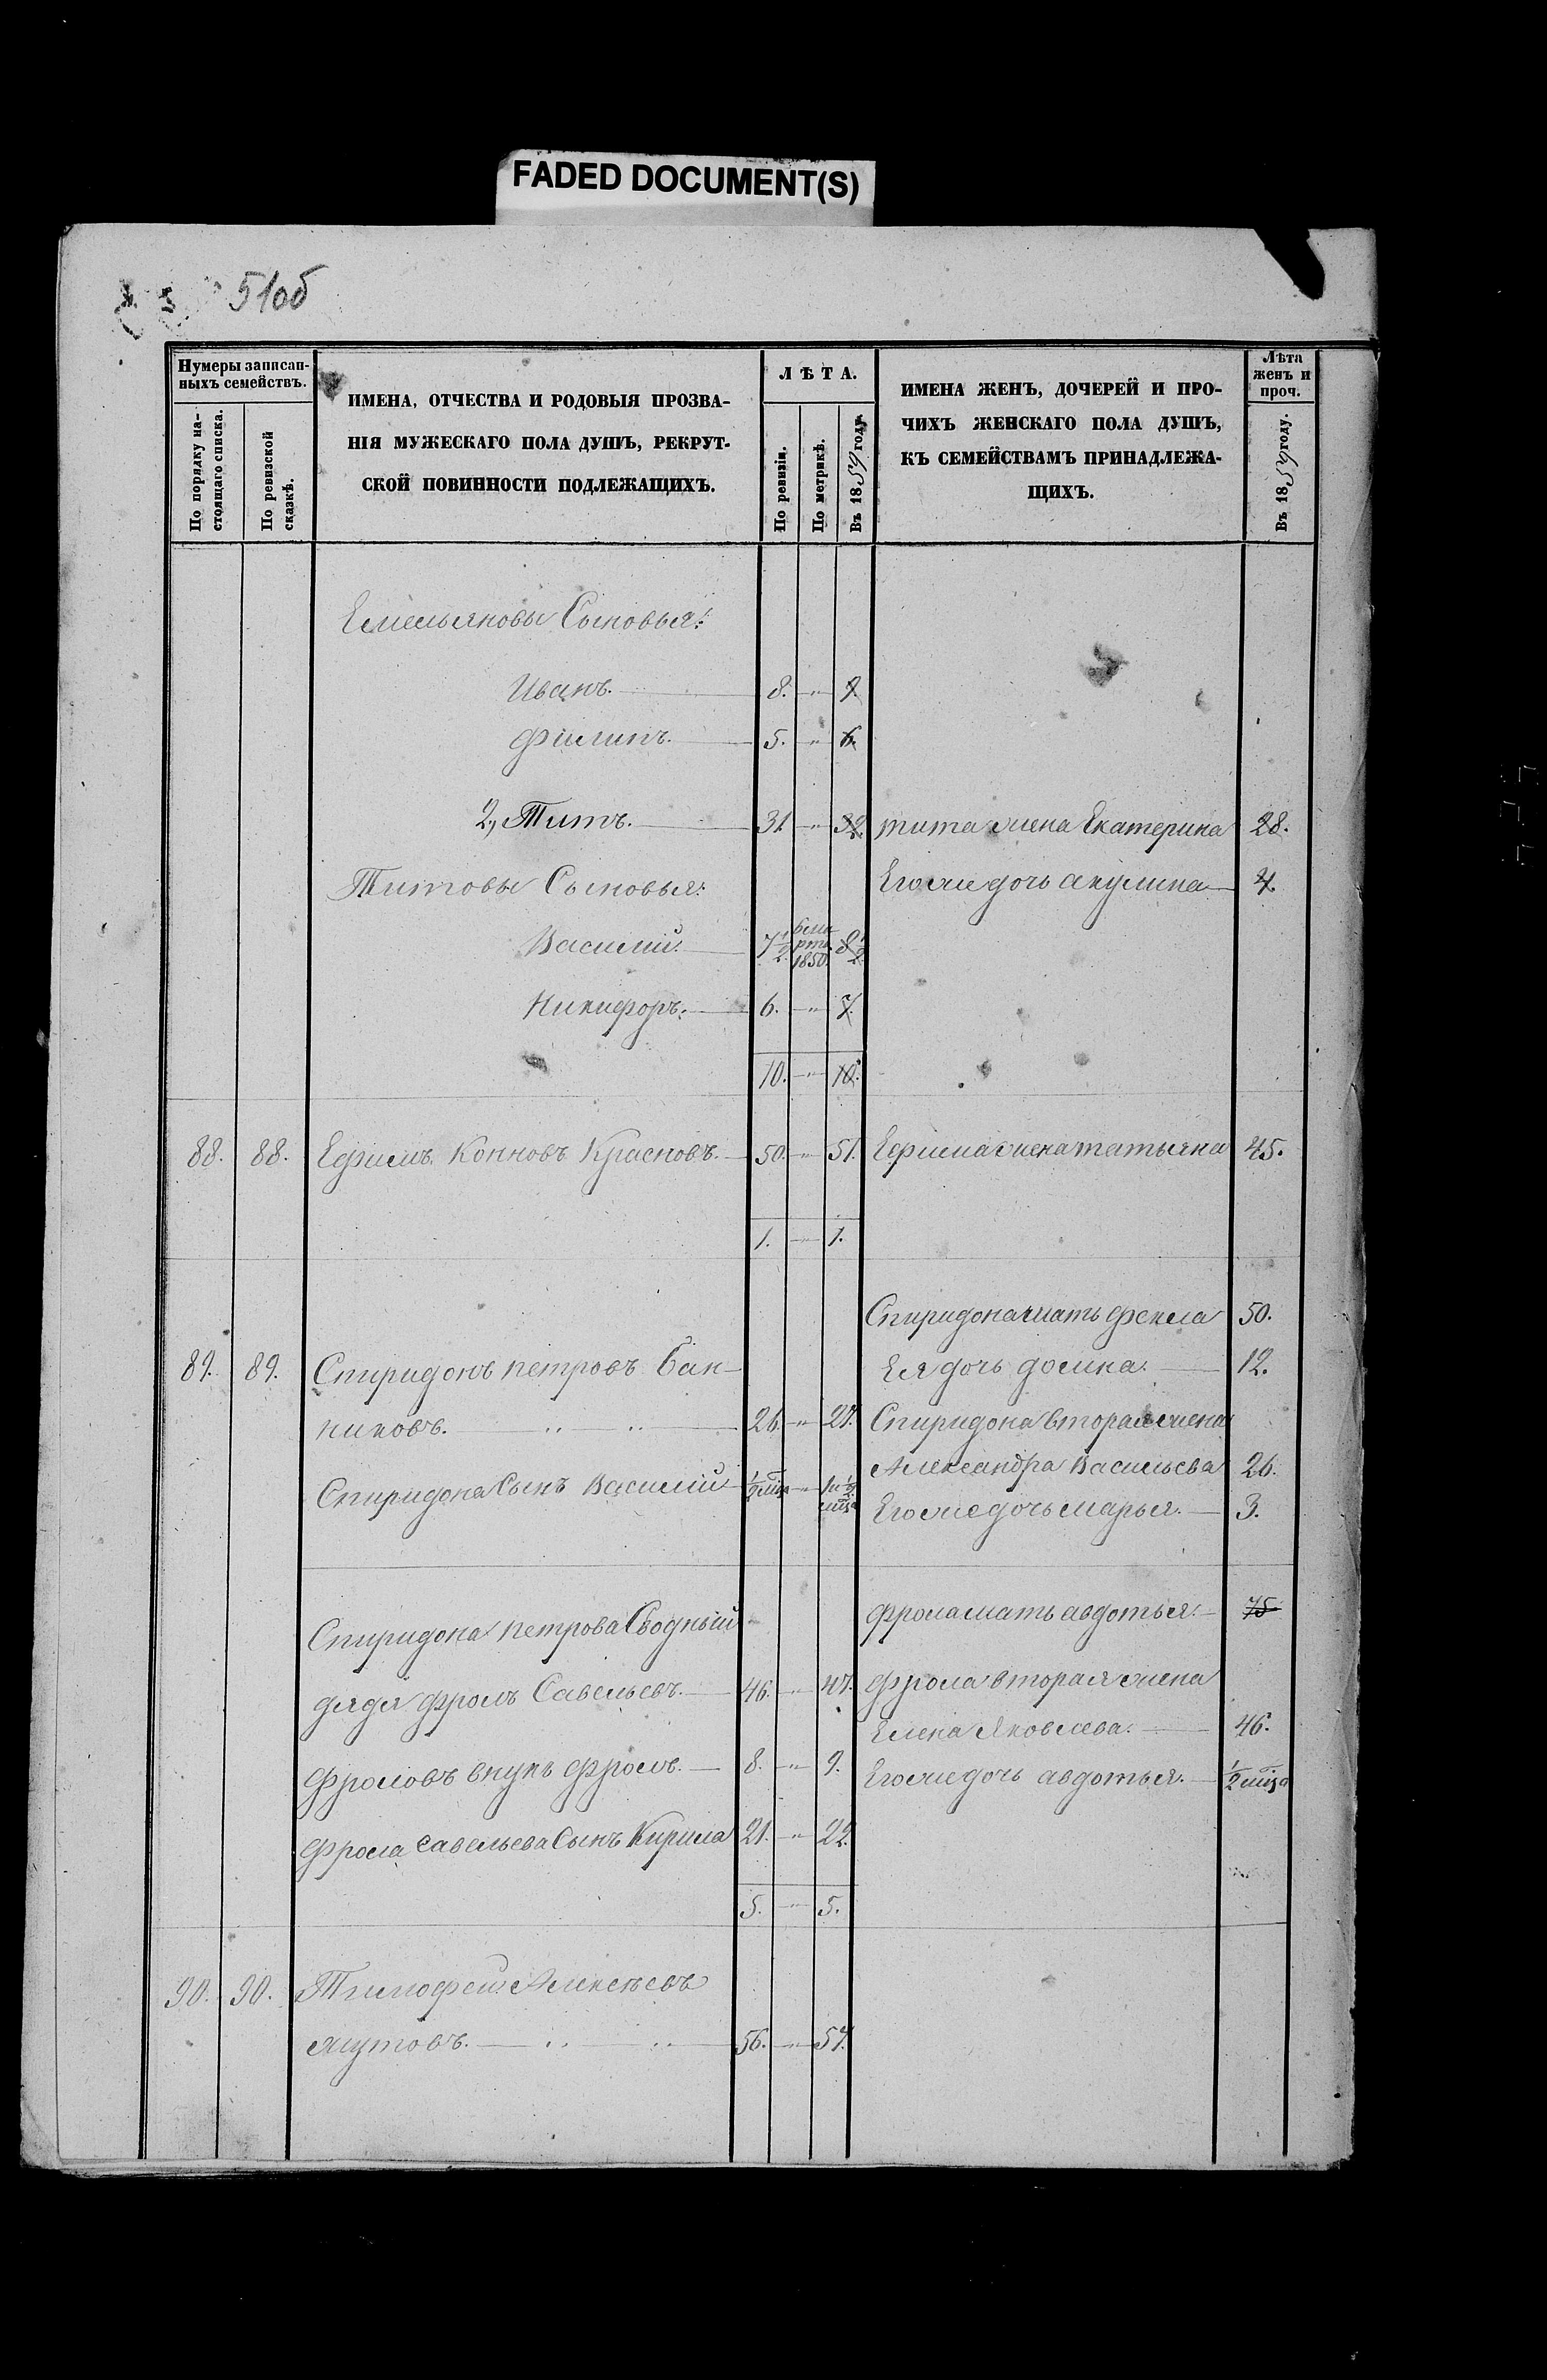 FADED DOCUMENT(S)
51об
Нумеры записан-
ныхъ семействъ.
По порядку на-
стоящаго списка.
По ревизской
сказкѣ.
ИМЕНА, ОТЧЕСТВА И РОДОВЫЯ ПРОЗВА-
НІЯ МУЖЕСКАГО ПОЛА ДУШЪ, РЕКРУТ-
СКОЙ ПОВИННОСТИ ПОДЛЕЖАЩИХЪ.
ЛѢТА.
По ревизіи.
По метрикѣ.
Въ 1859 году.
ИМЕНА ЖЕНЪ, ДОЧЕРЕЙ И ПРО-
ЧИХЪ ЖЕНСКАГО ПОЛА ДУШЪ,
КЪ СЕМЕЙСТВАМЪ ПРИНАДЛЕЖА-
ЩИХЪ.
Лѣта
женъ и
проч.
Въ 1859 году.
Емельяновы Сыновья:
Иванъ. 8. " 9.
Филипъ. 5. " 6.
2, Титъ. 31. " 32. тита жена Екатерина 28.
Титовы Сыновья: Егоже дочь акулина 4.
Василий. 7 1/2. 6 ма
рта
1850. 8 1/2.
Никифоръ. 6. " 7.
10. " 10.
88. 88. Ефимъ Коновъ Красновъ. 50. " 51. Ефима жена татьяна 45.
1. 1.
Спиридона мать фекла 50.
89. 89. Спиридонъ петровъ бан- Ея дочь домна. 12.
никовъ. 26. " 27. Спиридона вторая жена
Александра Васильева 26.
Спиридона Сынъ Василий 1/2 мца " 1 и 1/2 мца Егоже дочь марья. 3.
фрола мать авдотья. 75
Спиридона петрова Сводный
дядя фролъ Савельевъ. 46. " 47. фрола вторая жена
Елена Яковлева. 46.
фроловъ внукъ фролъ. 8. " 9. Егоже дочь авдотья. 1/2 мца
фрола Савельева Сынъ Кирила 21. " 22.
5. " 5.
90. 90. Тимофей Алексѣевъ
якутовъ. 56. " 57.